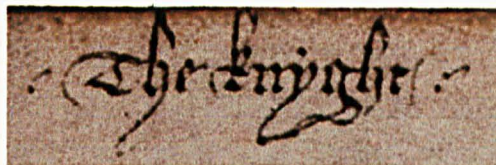 The knyght